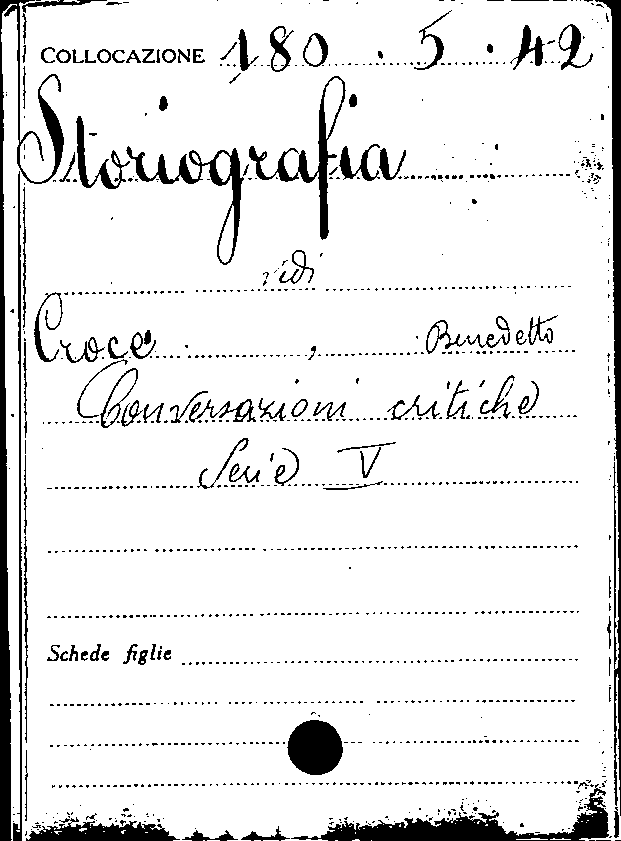 COLLOCAZIONE 180.5.42
Storiografia
vidi
Croce, Benedetto
Conversazioni critiche
Serie V
Schede figlie